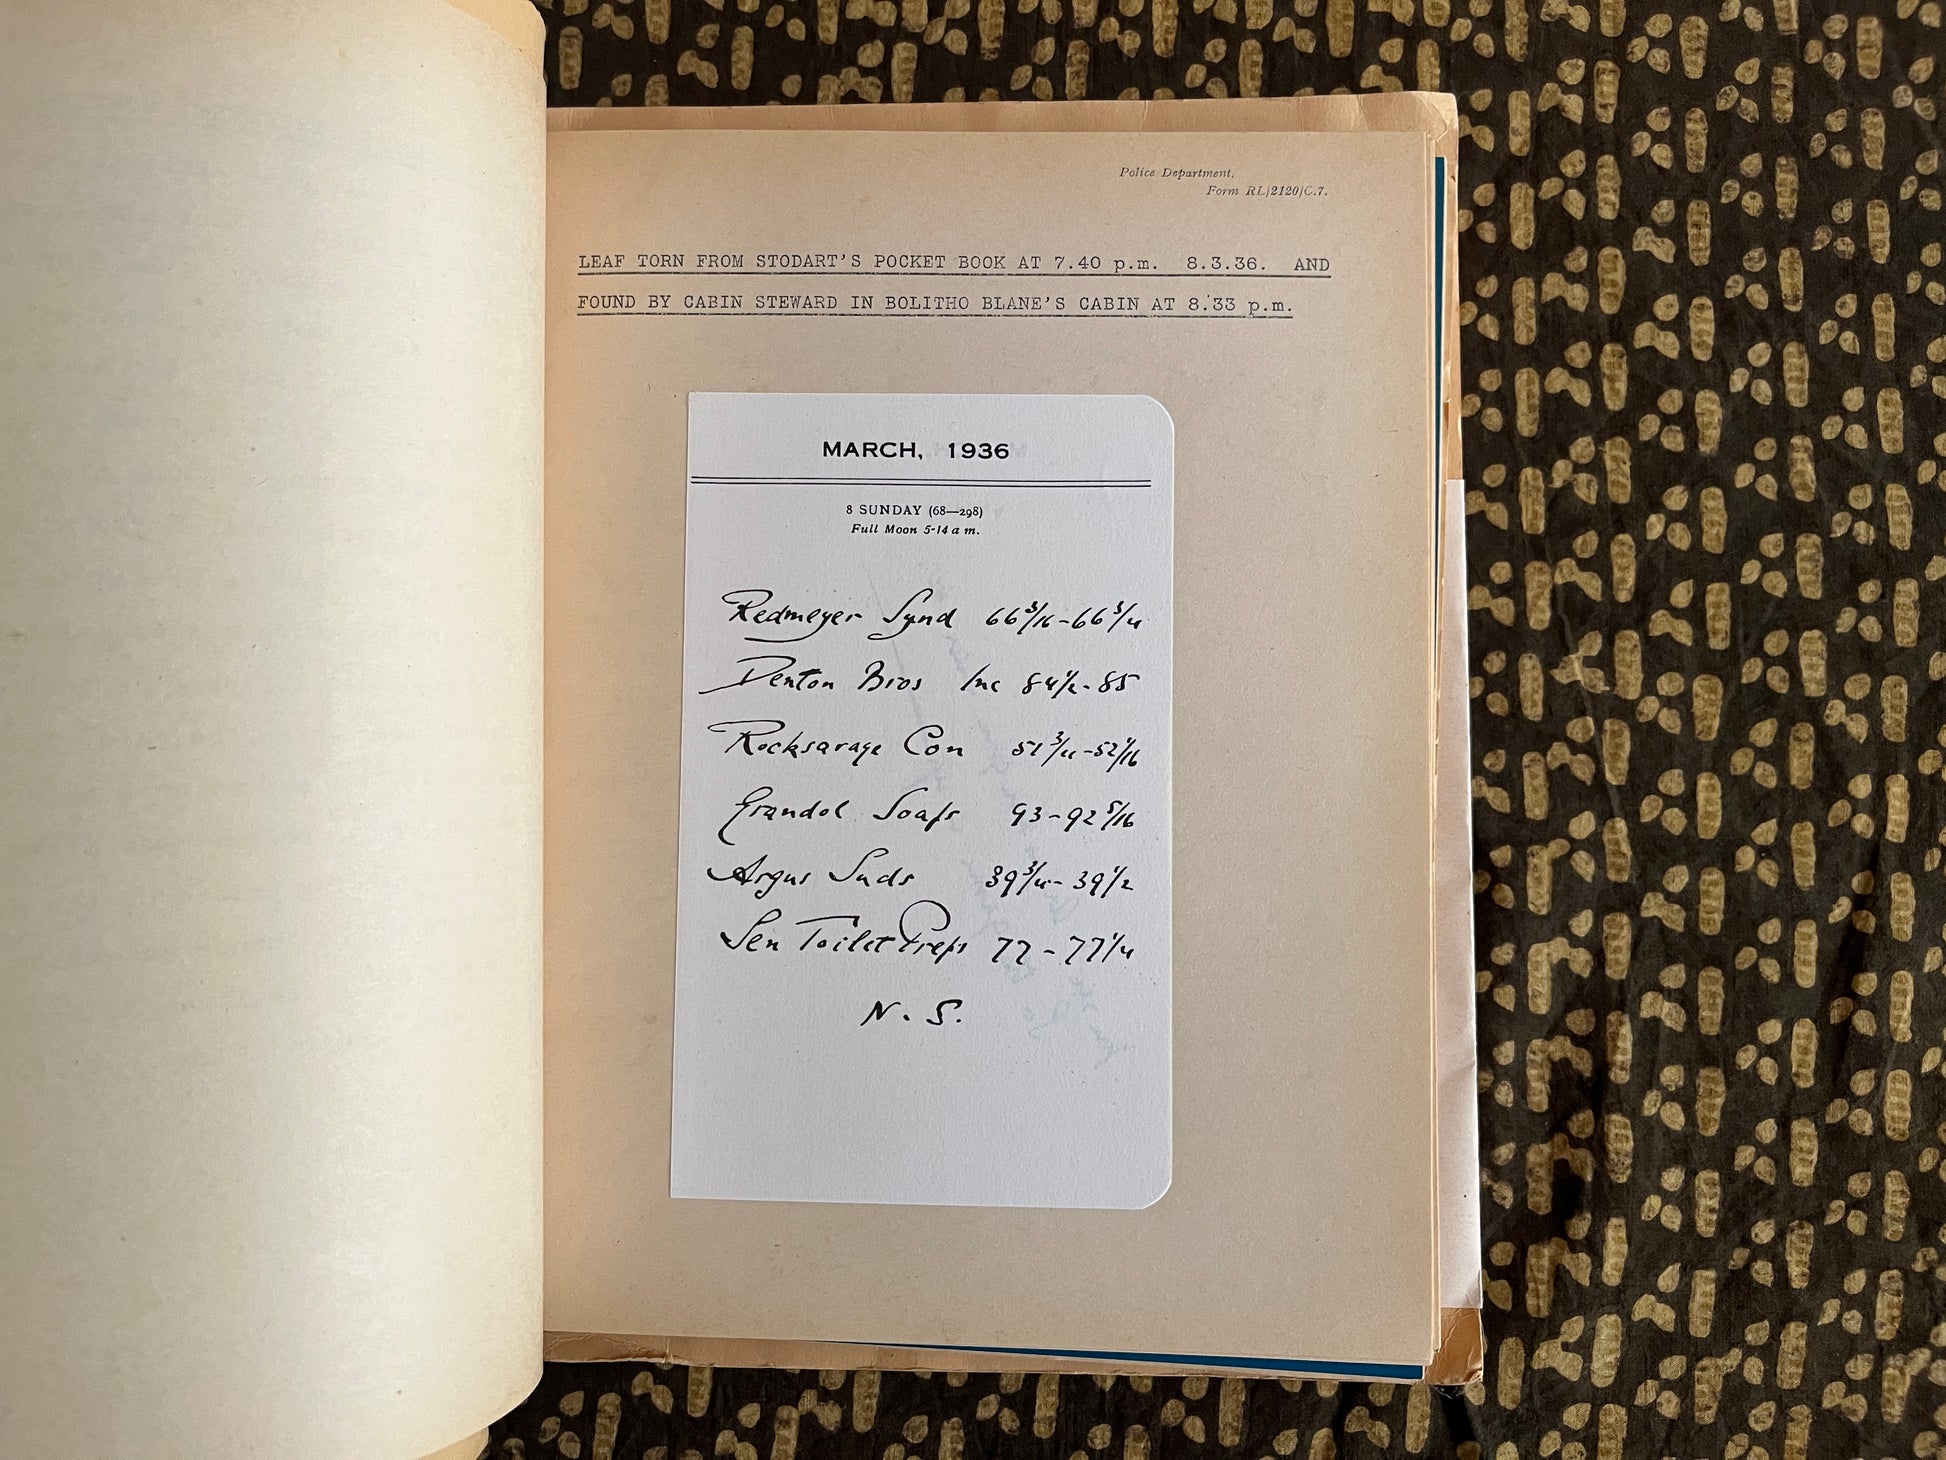 Police Department,
Form RL/2120/C.7.
LEAF TORN FROM STODART'S POCKET BOOK AT 7.40 p.m. 8.3.36. AND
FOUND BY CABIN STEWARD IN BOLITHO BLANE'S CABIN AT 8.33 p.m.
MARCH, 1936
8 SUNDAY (68—298)
Full Moon 5-14 a m.
Redmeyer Synd 66 3/16-66 3/4
Denton Bros Inc 84 1/2-85
Rocksavage Con 51 3/4-52 1/16
Grandol Soaps 93-92 5/16
Argus Suds 39 3/4-39 1/2
Sen Toilet Preps 77-77 1/4
N. S.